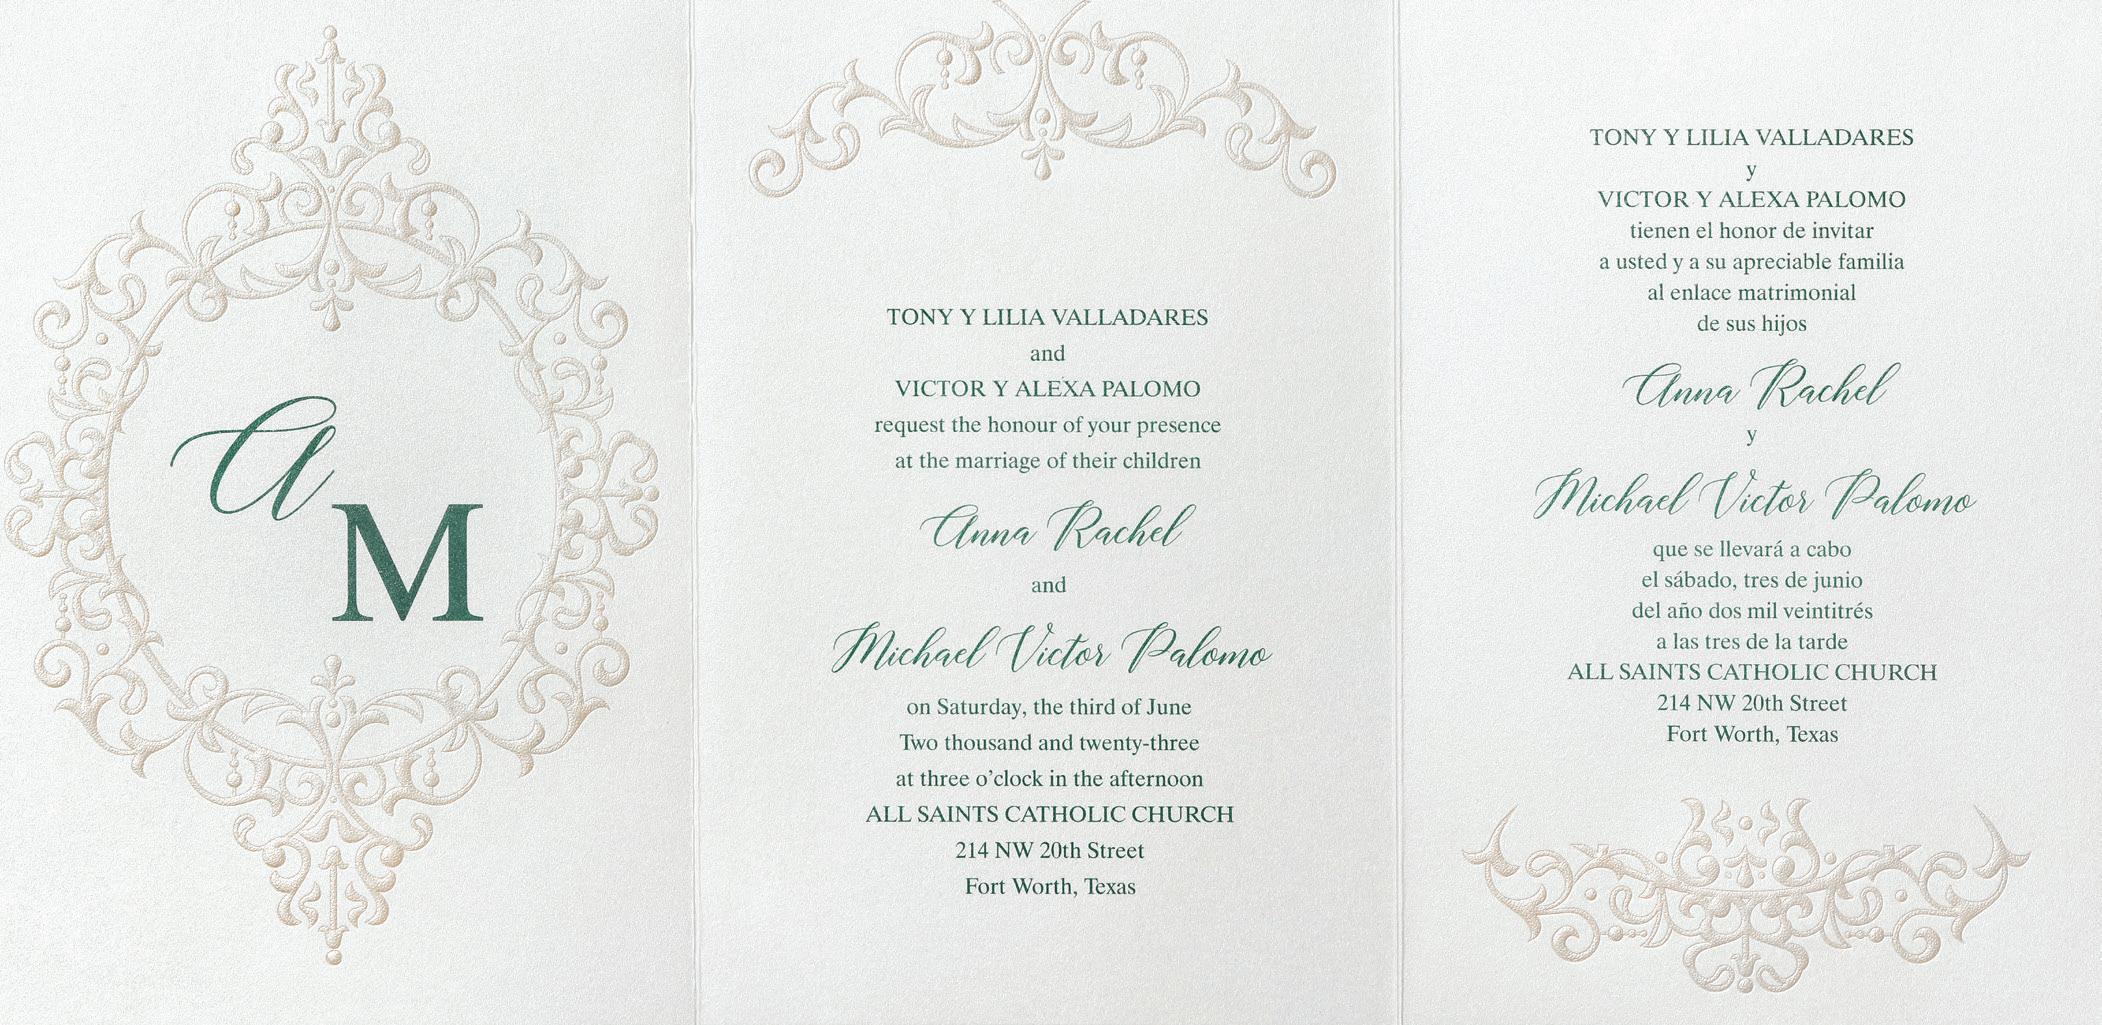 A
M
TONY Y LILIA VALLADARES
and
VICTOR Y ALEXA PALOMO
request the honour of your presence
at the marriage of their children
Anna Rachel
and
Michael Victor Palomo
on Saturday, the third of June
Two thousand and twenty-three
at three o’clock in the afternoon
ALL SAINTS CATHOLIC CHURCH
214 NW 20th Street
Fort Worth, Texas
TONY Y LILIA VALLADARES
y
VICTOR Y ALEXA PALOMO
tienen el honor de invitar
a usted y a su apreciable familia
al enlace matrimonial
de sus hijos
Anna Rachel
y
Michael Victor Palomo
que se llevará a cabo
el sábado, tres de junio
del año dos mil veintitrés
a las tres de la tarde
ALL SAINTS CATHOLIC CHURCH
214 NW 20th Street
Fort Worth, Texas